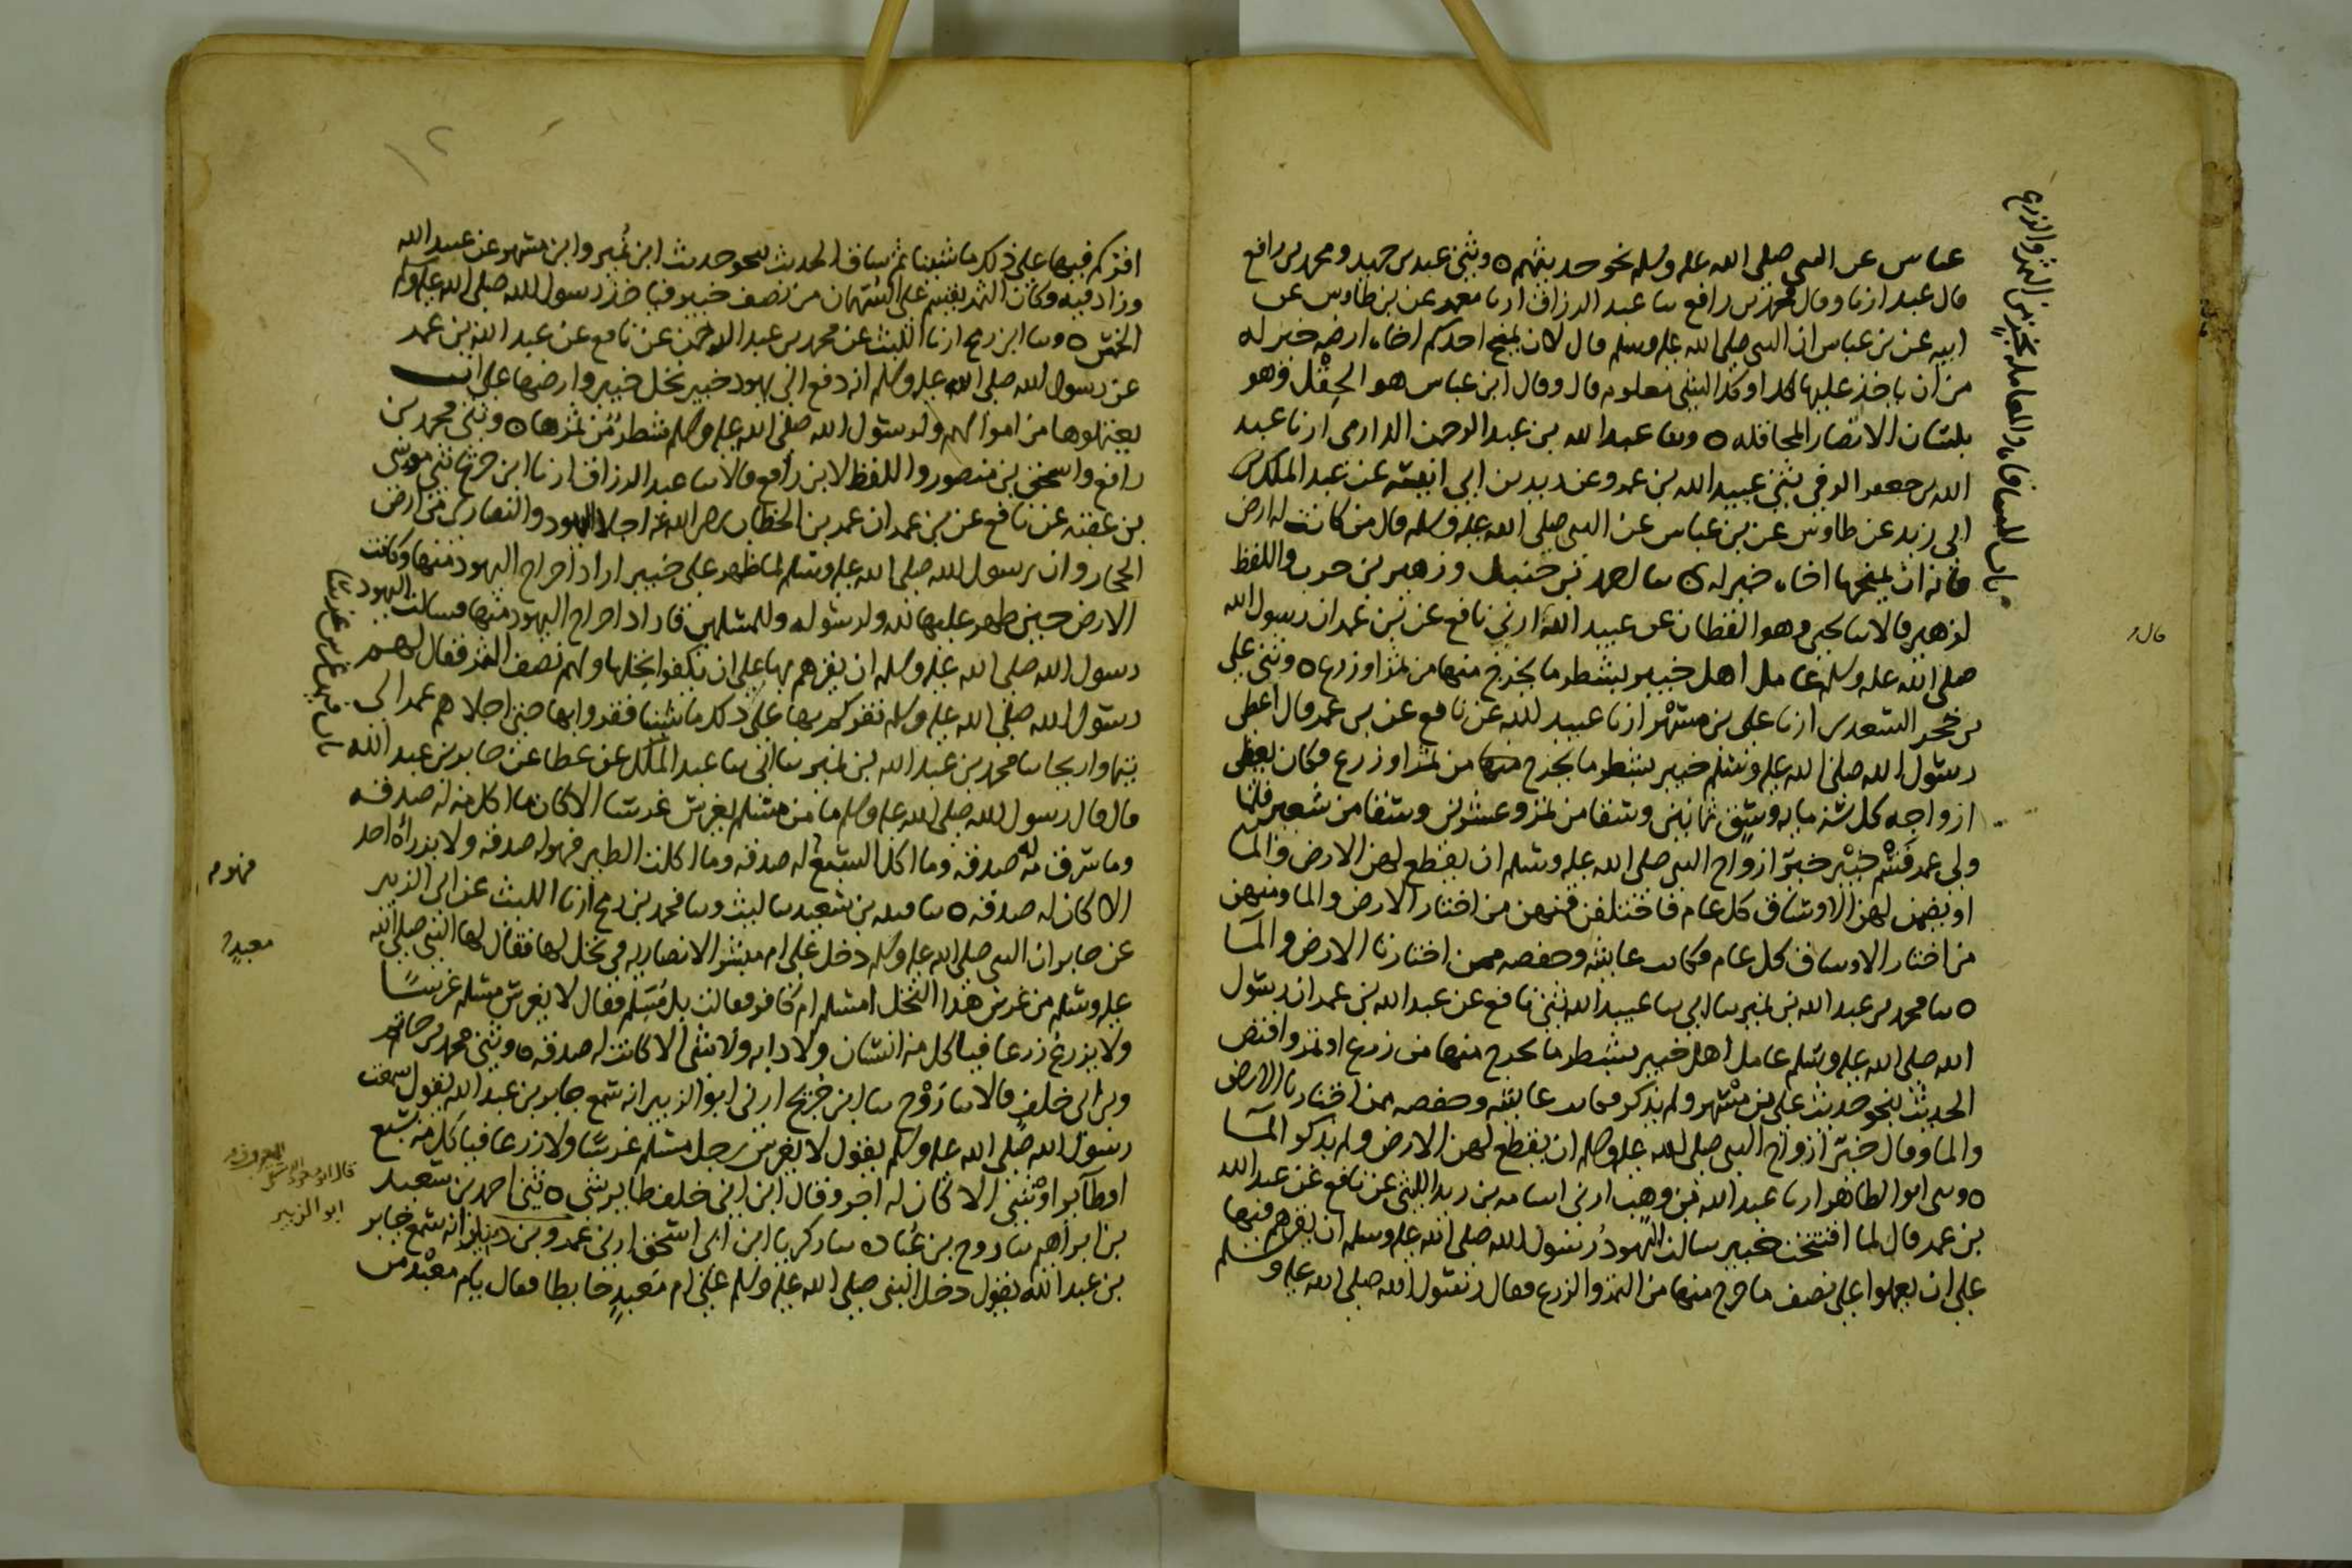 عباس عن النبي صلى الله عليه وسلم نحو حديثهم ٥ وثني عبد بن حميد ومحمد بن رافع
قال عبد ارنا وقال محمد بن رافع نا عبد الرزاق ارنا معمر عن بن طاوس عن
ابيه عن بن عباس ان النبي صلى الله عليه وسلم قال لان يمنح احدكم اخاه ارضه خير له
من ان ياخذ عليها كذا وكذا لشي معلوم قال وقال ابن عباس هو الحقل وهو
بلسان الانصار المحاقله ٥ ونا عبد الله بن عبد الرحمن الدارمي ارنا عبد
الله بن جعفر الرقي ثني عبيد الله بن عمرو عن زيد بن ابي انيسه عن عبد الملك بن
ابي زيد عن طاوس عن بن عباس عن النبي صلى الله عليه وسلم قال من كانت له ارض
فانه ان يمنحها اخاه خير له ٥ نا احمد بن حنبل وزهير بن حرب واللفظ
لزهير قالا نا يحيى وهو القطان عن عبيد الله ارني نافع عن بن عمر ان رسول الله
صلى الله عليه وسلم عامل اهل خيبر بشطر ما يخرج منها من ثمر او زرع ٥ وثني علي
بن حجر السعدي ارنا علي بن مسهر ارنا عبيد الله عن نافع عن بن عمر قال اعطى
رسول الله صلى الله عليه وسلم خيبر بشطر ما يخرج منها من ثمر او زرع فكان يعطي
ازواجه كل سنه مايه وسق ثمانين وسقا من تمر وعشرين وسقا من شعير فلما
ولي عمر قسم خيبر خير ازواج النبي صلى الله عليه وسلم ان يقطع لهن الارض والما
او يضمن لهن الاوساق كل عام فاختلفن فمنهن من اختار الارض والما ومنهن
من اختار الاوساق كل عام فكانت عايشه وحفصه ممن اختارتا الارض والما
٥ نا محمد بن عبد الله بن نمير نا ابي نا عبيد الله ثني نافع عن عبد الله بن عمر ان رسول
الله صلى الله عليه وسلم عامل اهل خيبر بشطر ما يخرج منها من زرع او ثمر واقتص
الحديث بنحو حديث علي بن مسهر ولم يذكر فكانت عايشه وحفصه ممن اختارتا الارض
والما وقال خير ازواج النبي صلى الله عليه وسلم ان يقطع لهن الارض ولم يذكر الما
٥ وثني ابو الطاهر ارنا عبد الله بن وهب ارني اسامه بن زيد الليثي عن نافع عن عبد الله
بن عمر قال لما افتتحت خيبر سالت اليهود رسول الله صلى الله عليه وسلم ان يقرهم فيها
على ان يعملوا على نصف ما خرج منها من الثمر والزرع فقال رسول الله صلى الله عليه وسلم
باب المساقاه والمعامله بجزء من الثمر والزرع
قال
١٢
اقركم فيها على ذلك ما شينا ثم ساق الحديث بنحو حديث ابن نمير وابن مسهر عن عبيد الله
وزاد فيه وكان الثمر يقسم على السهمان من نصف خيبر فياخذ رسول الله صلى الله عليه وسلم
الخمس ٥ ونا ابن رمح ارنا الليث عن محمد بن عبد الرحمن عن نافع عن عبد الله بن عمر
عن رسول الله صلى الله عليه وسلم انه دفع الى يهود خيبر نخل خيبر وارضها على ان
يعتملوها من اموالهم ولرسول الله صلى الله عليه وسلم شطر من ثمرها ٥ وثني محمد بن
رافع واسحق بن منصور واللفظ لابن رافع قالا نا عبد الرزاق ارنا ابن جريج ثني موسى
بن عقبه عن نافع عن بن عمر ان عمر بن الخطاب رضي الله عنه اجلا اليهود والنصارى من ارض
الحجاز وان رسول الله صلى الله عليه وسلم لما ظهر على خيبر اراد اخراج اليهود منها وكانت
الارض حين ظهر عليها لله ولرسوله وللمسلمين فاراد اخراج اليهود منها فسالت اليهود
رسول الله صلى الله عليه وسلم ان يقرهم بها على ان يكفوا نخلها ولهم نصف الثمر فقال لهم
رسول الله صلى الله عليه وسلم نقركم بها على ذلك ما شينا فقروا بها حتى اجلاهم عمر الى
تيما واريحا نا محمد بن عبد الله بن نمير نا ابي نا عبد الملك عن عطا عن جابر بن عبد الله
قال قال رسول الله صلى الله عليه وسلم ما من مسلم يغرس غرسا الا كان ما اكل منه له صدقه
وما سرق منه له صدقه وما اكل السبع له صدقه وما اكلت الطير فهو له صدقه ولا يزراه احد
الا كان له صدقه ٥ نا قتيبه بن سعيد نا ليث ونا محمد بن رمح ارنا الليث عن ابي الزبير
عن جابر ان النبي صلى الله عليه وسلم دخل على ام مبشر الانصاريه في نخل لها فقال لها النبي صلى الله
عليه وسلم من غرس هذا النخل امسلم ام كافر فقالت بل مسلم فقال لا يغرس مسلم غرسا
ولا يزرع زرعا فياكل منه انسان ولا دابه ولا شي الا كانت له صدقه ٥ وثني محمد بن حاتم
وبن ابي خلف قالا نا روح نا ابن جريج ارني ابو الزبير انه سمع جابر بن عبد الله يقول سمعت
رسول الله صلى الله عليه وسلم يقول لا يغرس رجل مسلم غرسا ولا زرعا فياكل منه سبع
او طاير او شي الا كان له اجر وقال ابن ابي خلف طاير شي ٥ ثني احمد بن سعيد
بن ابراهيم نا روح بن عباده نا زكريا ابن ابي اسحق ارني عمرو بن دينار انه سمع جابر
بن عبد الله يقول دخل النبي صلى الله عليه وسلم على ام معبد حايطا فقال يام معبد من
باب فيمن غرس غرسا
فهو
معبد
ابو الزبير